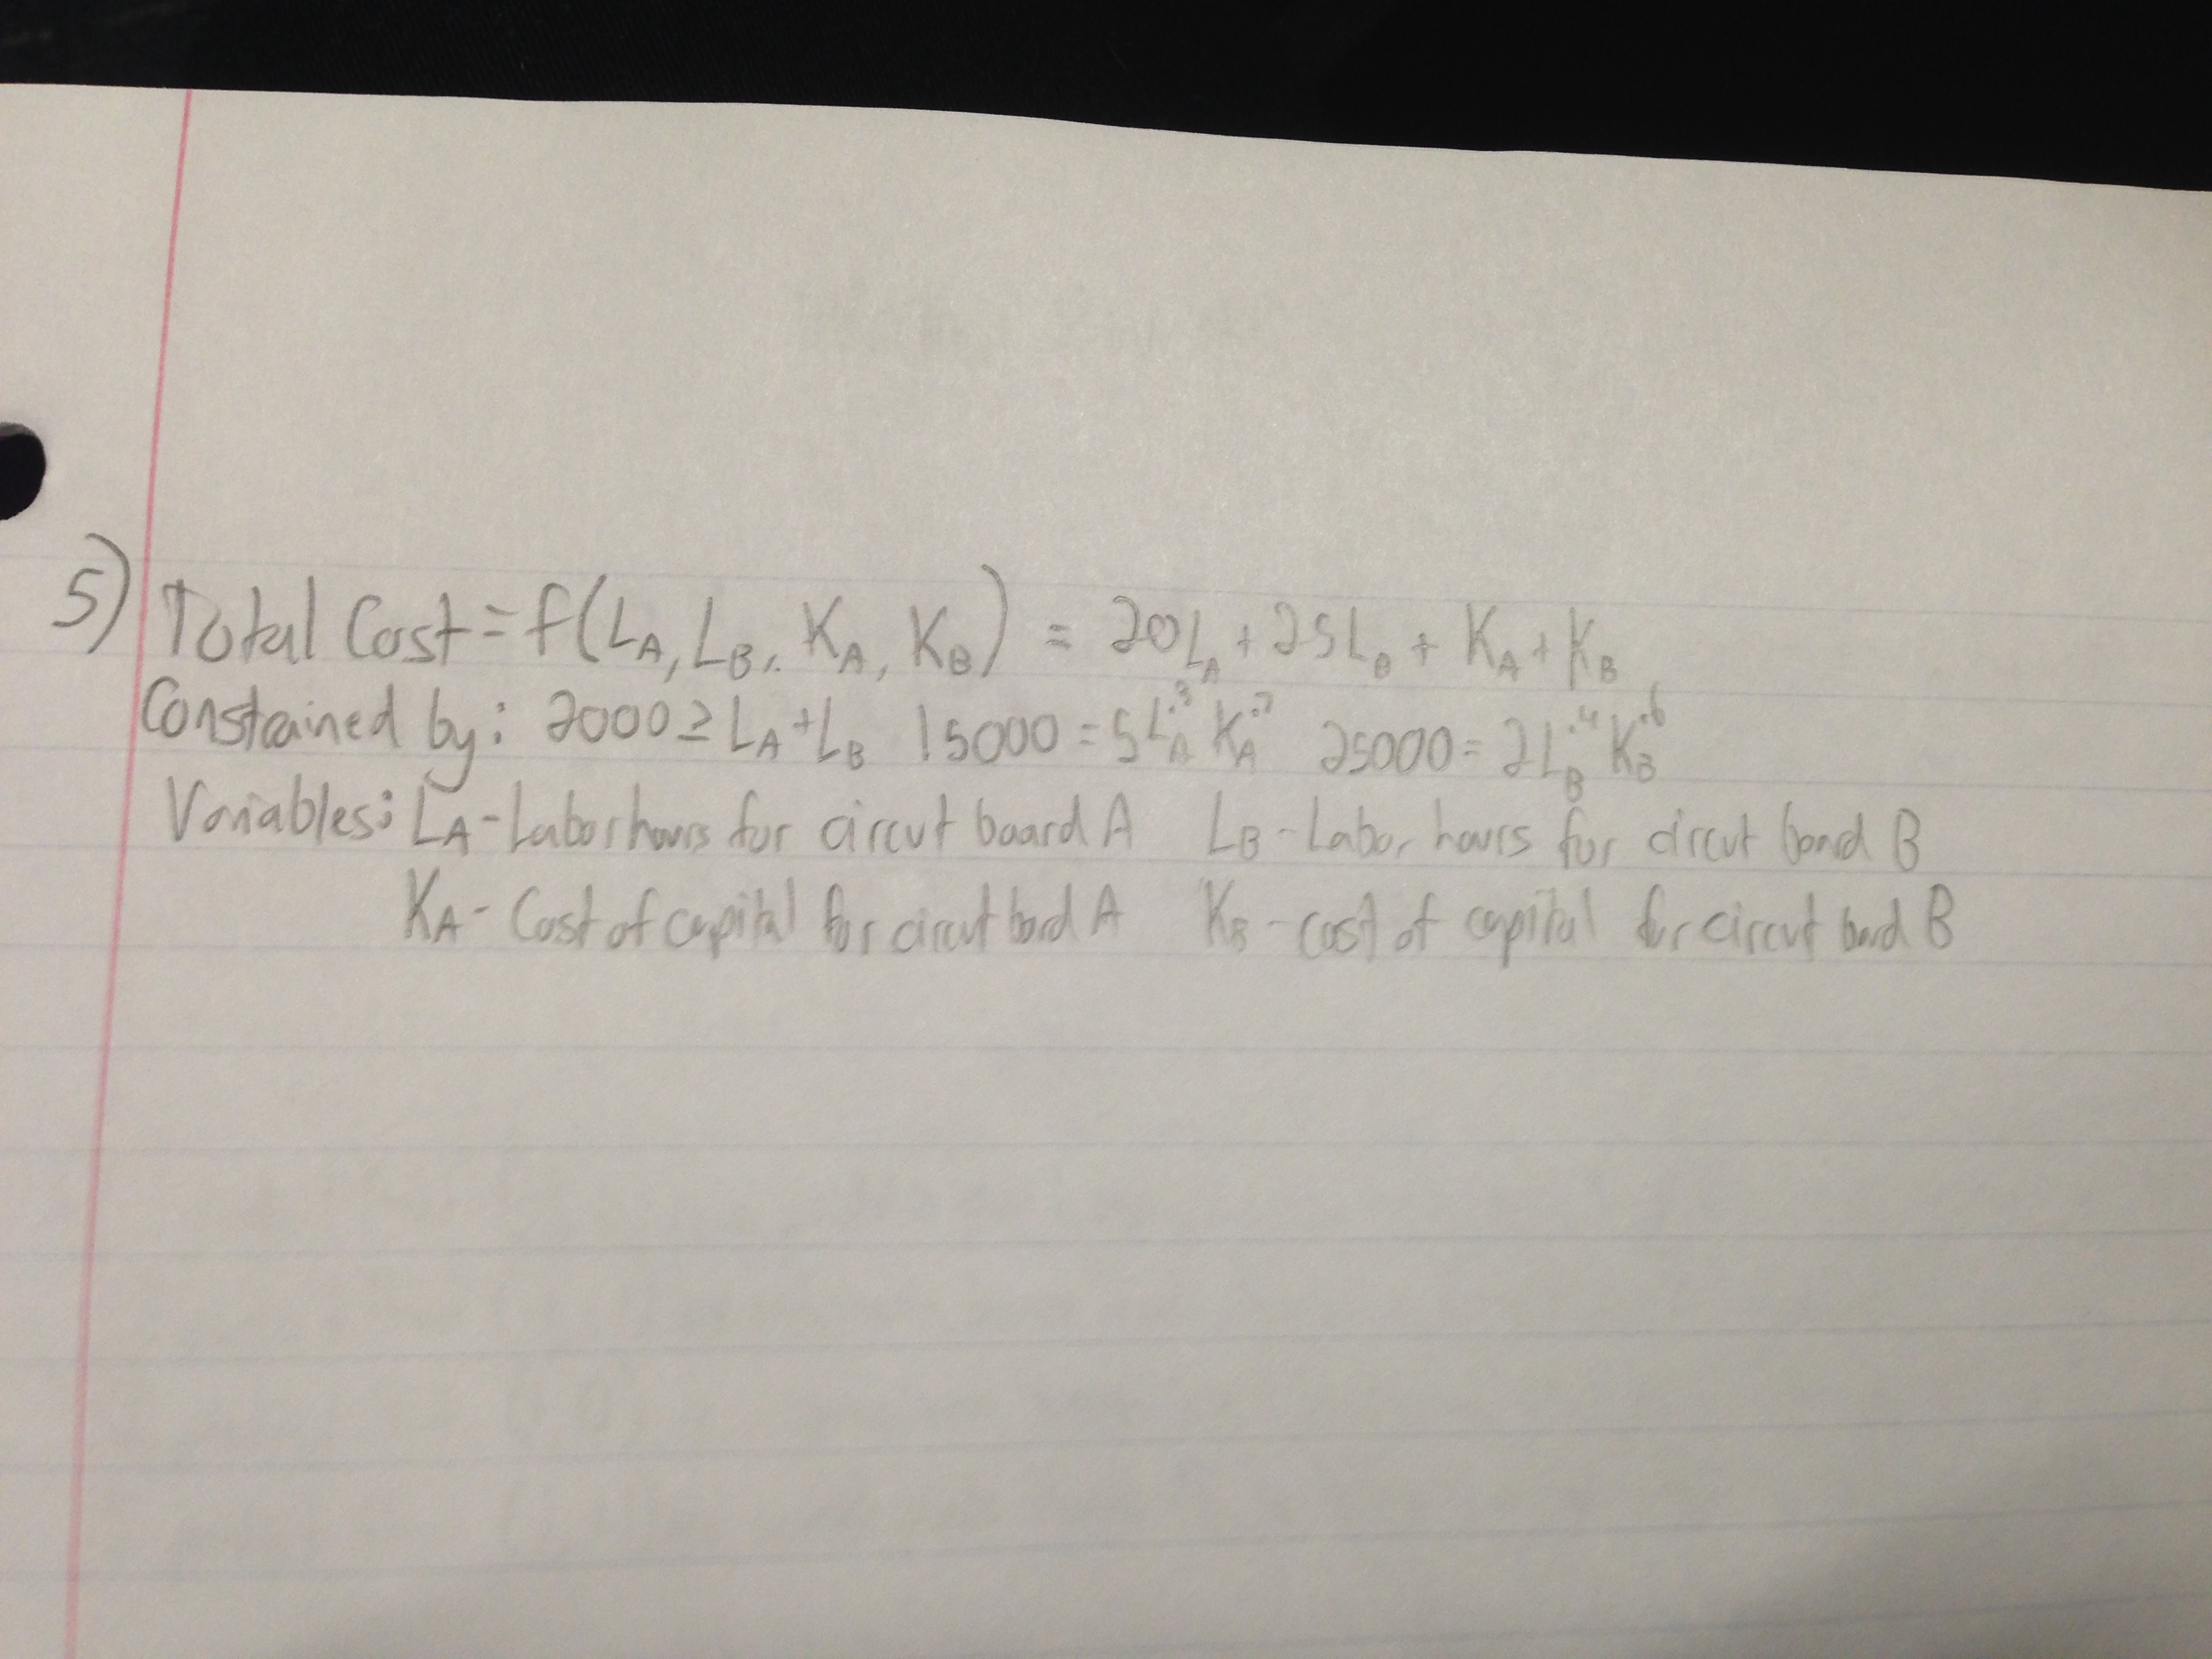 5) Total Cost = f(L_A, L_B, K_A, K_B) = 20L_A + 25L_B + K_A + K_B
Constrained by: 2000 ≥ L_A + L_B 15000 = 5L_A^.3 K_A^.7 25000 = 2L_B^.4 K_B^.6
Variables: L_A - Labor hours for circut board A L_B - Labor hours for circut board B
K_A - Cost of capital for circut bord A K_B - cost of capital for circut bard B